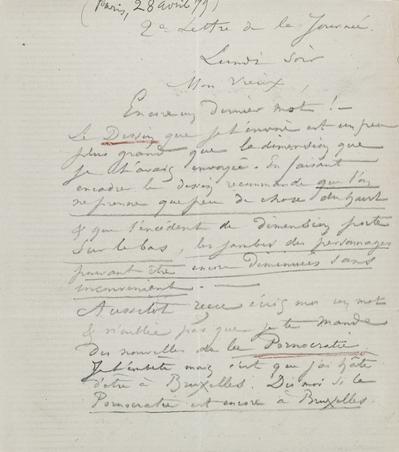 (Paris, 28 avril 79)
2e Lettre de la Journée.
Lundi Soir
Mon Vieux,
Encore un Dernier mot ! —
Le Dessin que je t'envoie est un peu
plus grand que la dimension que
je t'avais envoyée. En faisant
encadrer le dessin recommande que l'on
ne prenne que peu de chose du haut
& que l'excédent de dimension porte
sur le bas, les jambes des personnages
pouvant être encore diminuées sans
inconvenient. —
Aussitot recu écris moi un mot
& n'oublie pas que je te demande
des nouvelles de la Pornocratie
Je t'embête mais c'est que j'ai hâte
d'être à Bruxelles. Dis moi si la
Pornocratie est encore à Bruxelles.